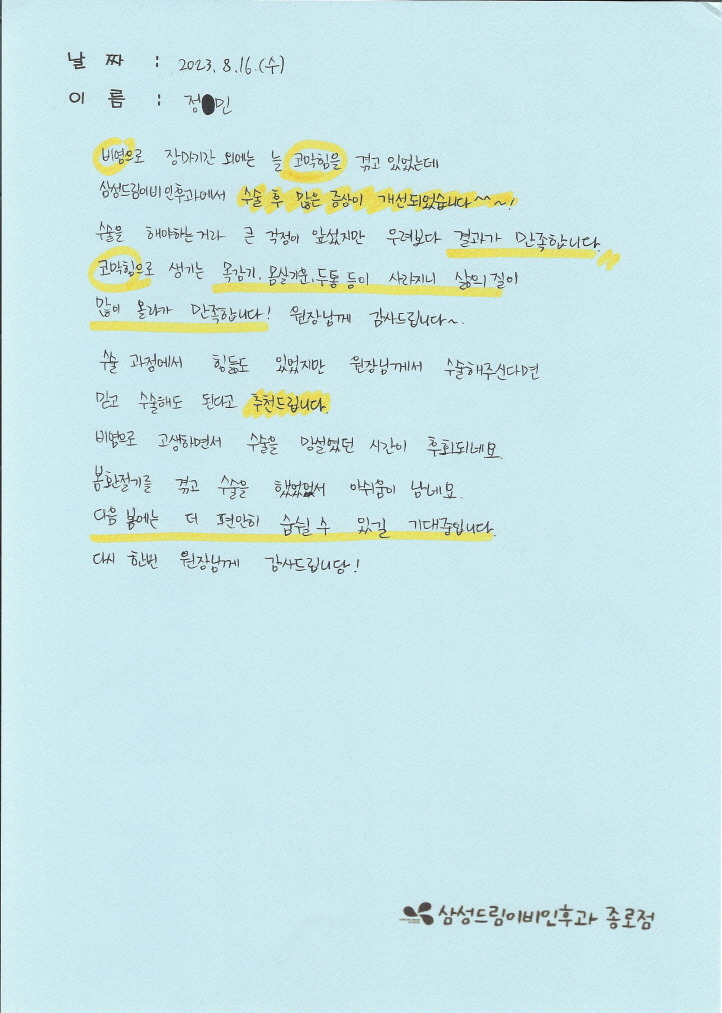 날 짜 : 2023. 8. 16. (수)
이 름 : 정 민
비염으로 장마기간 외에는 늘 코막힘을 겪고 있었는데
삼성드림이비인후과에서 수술 후 많은 증상이 개선되었습니다^^~!
수술을 해야하는거라 큰 걱정이 앞섰지만 우려보다 결과가 만족합니다.
코막힘으로 생기는 목감기, 몸살기운, 두통 등이 사라지니 삶의 질이
많이 올라가 만족합니다! 원장님께 감사드립니다~.
수술 과정에서 힘듦도 있었지만 원장님께서 수술해주신다면
믿고 수술해도 된다고 추천드립니다.
비염으로 고생하면서 수술을 망설였던 시간이 후회되네요.
봄환절기를 겪고 수술을 아쉬움이 남네요.
다음 봄에는 더 편안히 숨쉴 수 있길 기대중입니다.
다시 한번 원장님께 감사드립니당!
삼성드림이비인후과 종로점